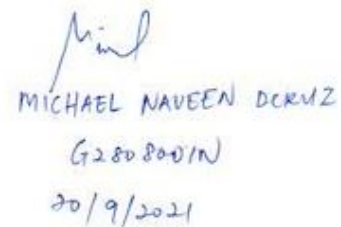 MICHAEL NAVEEN DCRUZ
G2808001N
20/9/2021